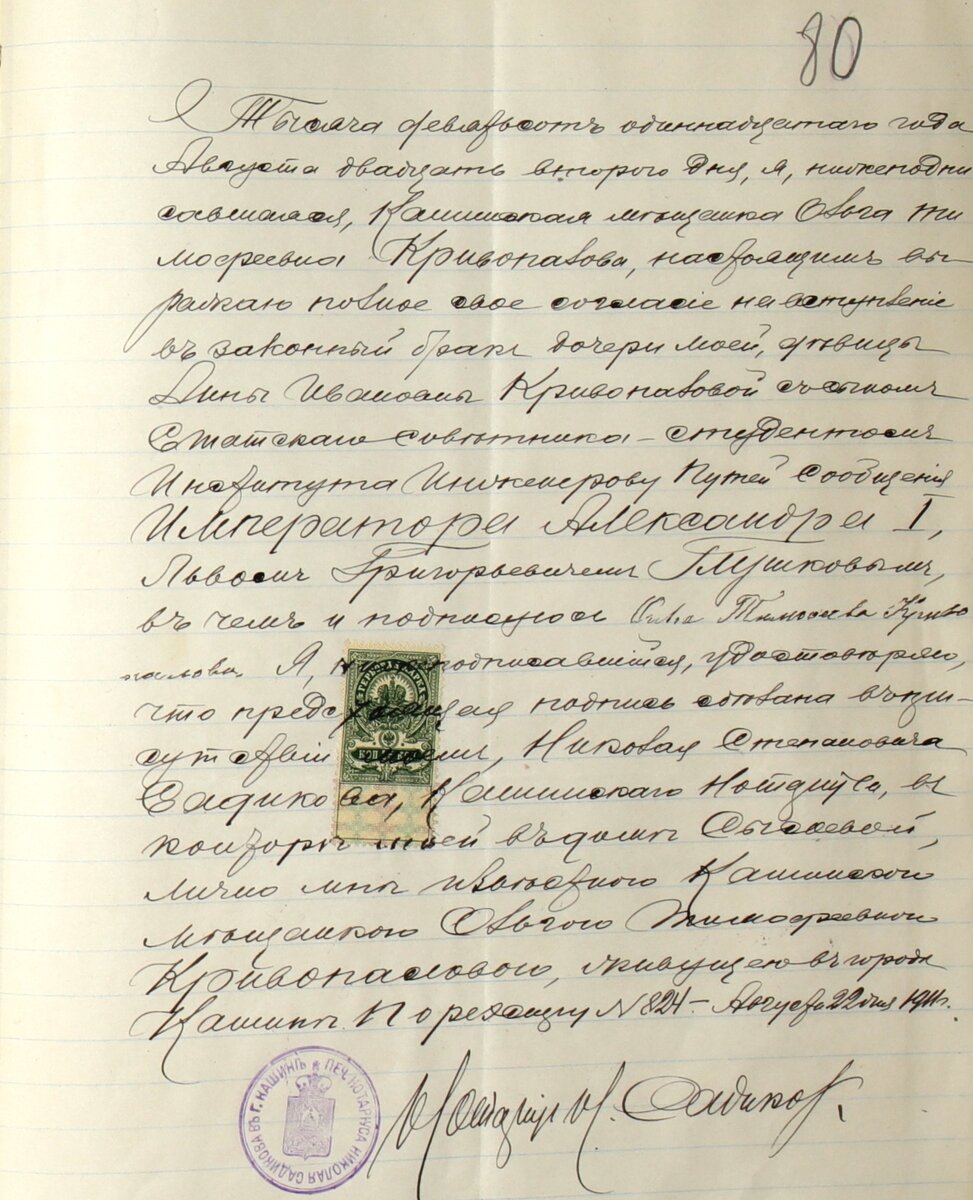 80
Тысяча девятьсотъ одиннадцатаго года
Августа двадцать второго дня, я, нижеподпи
савшаяся, Кашинская мѣщанка Ольга Ти
мофеевна Кривопалова, настоящимъ вы
ражаю полное свое согласіе на вступленіе
въ законный бракъ дочери моей, дѣвицы
Нины Ивановны Кривопаловой съ сыномъ
Статскаго Совѣтника – студентомъ
Института Инженеровъ Путей Сообщенія
Императора Александра I,
Львомъ Григорьевичемъ Глушковымъ,
въ чемъ и подписуюсь Ольга Тимофеева Криво
палова. Я, нижеподписавшійся, удостовѣряю,
что предстоящая подпись сдѣлана въ при-
сутствіи моемъ, Николая Степановича
Садикова, Кашинскаго Нотаріуса, въ
конторѣ моей въ домѣ Сысоевой,
лично мнѣ извѣстною Кашинскою
мѣщанкою Ольгою Тимофеевною
Кривопаловою, живущею въ городѣ
Кашинѣ. По реестру № 824 – Августа 22 дня 1911 г.
Нотаріусъ Н. Садиковъ.
ГЕРБОВАЯ МАРКА
ПЕЧ. НОТАРІУСА НИКОЛАЯ САДИКОВА ВЪ Г. КАШИНѢ